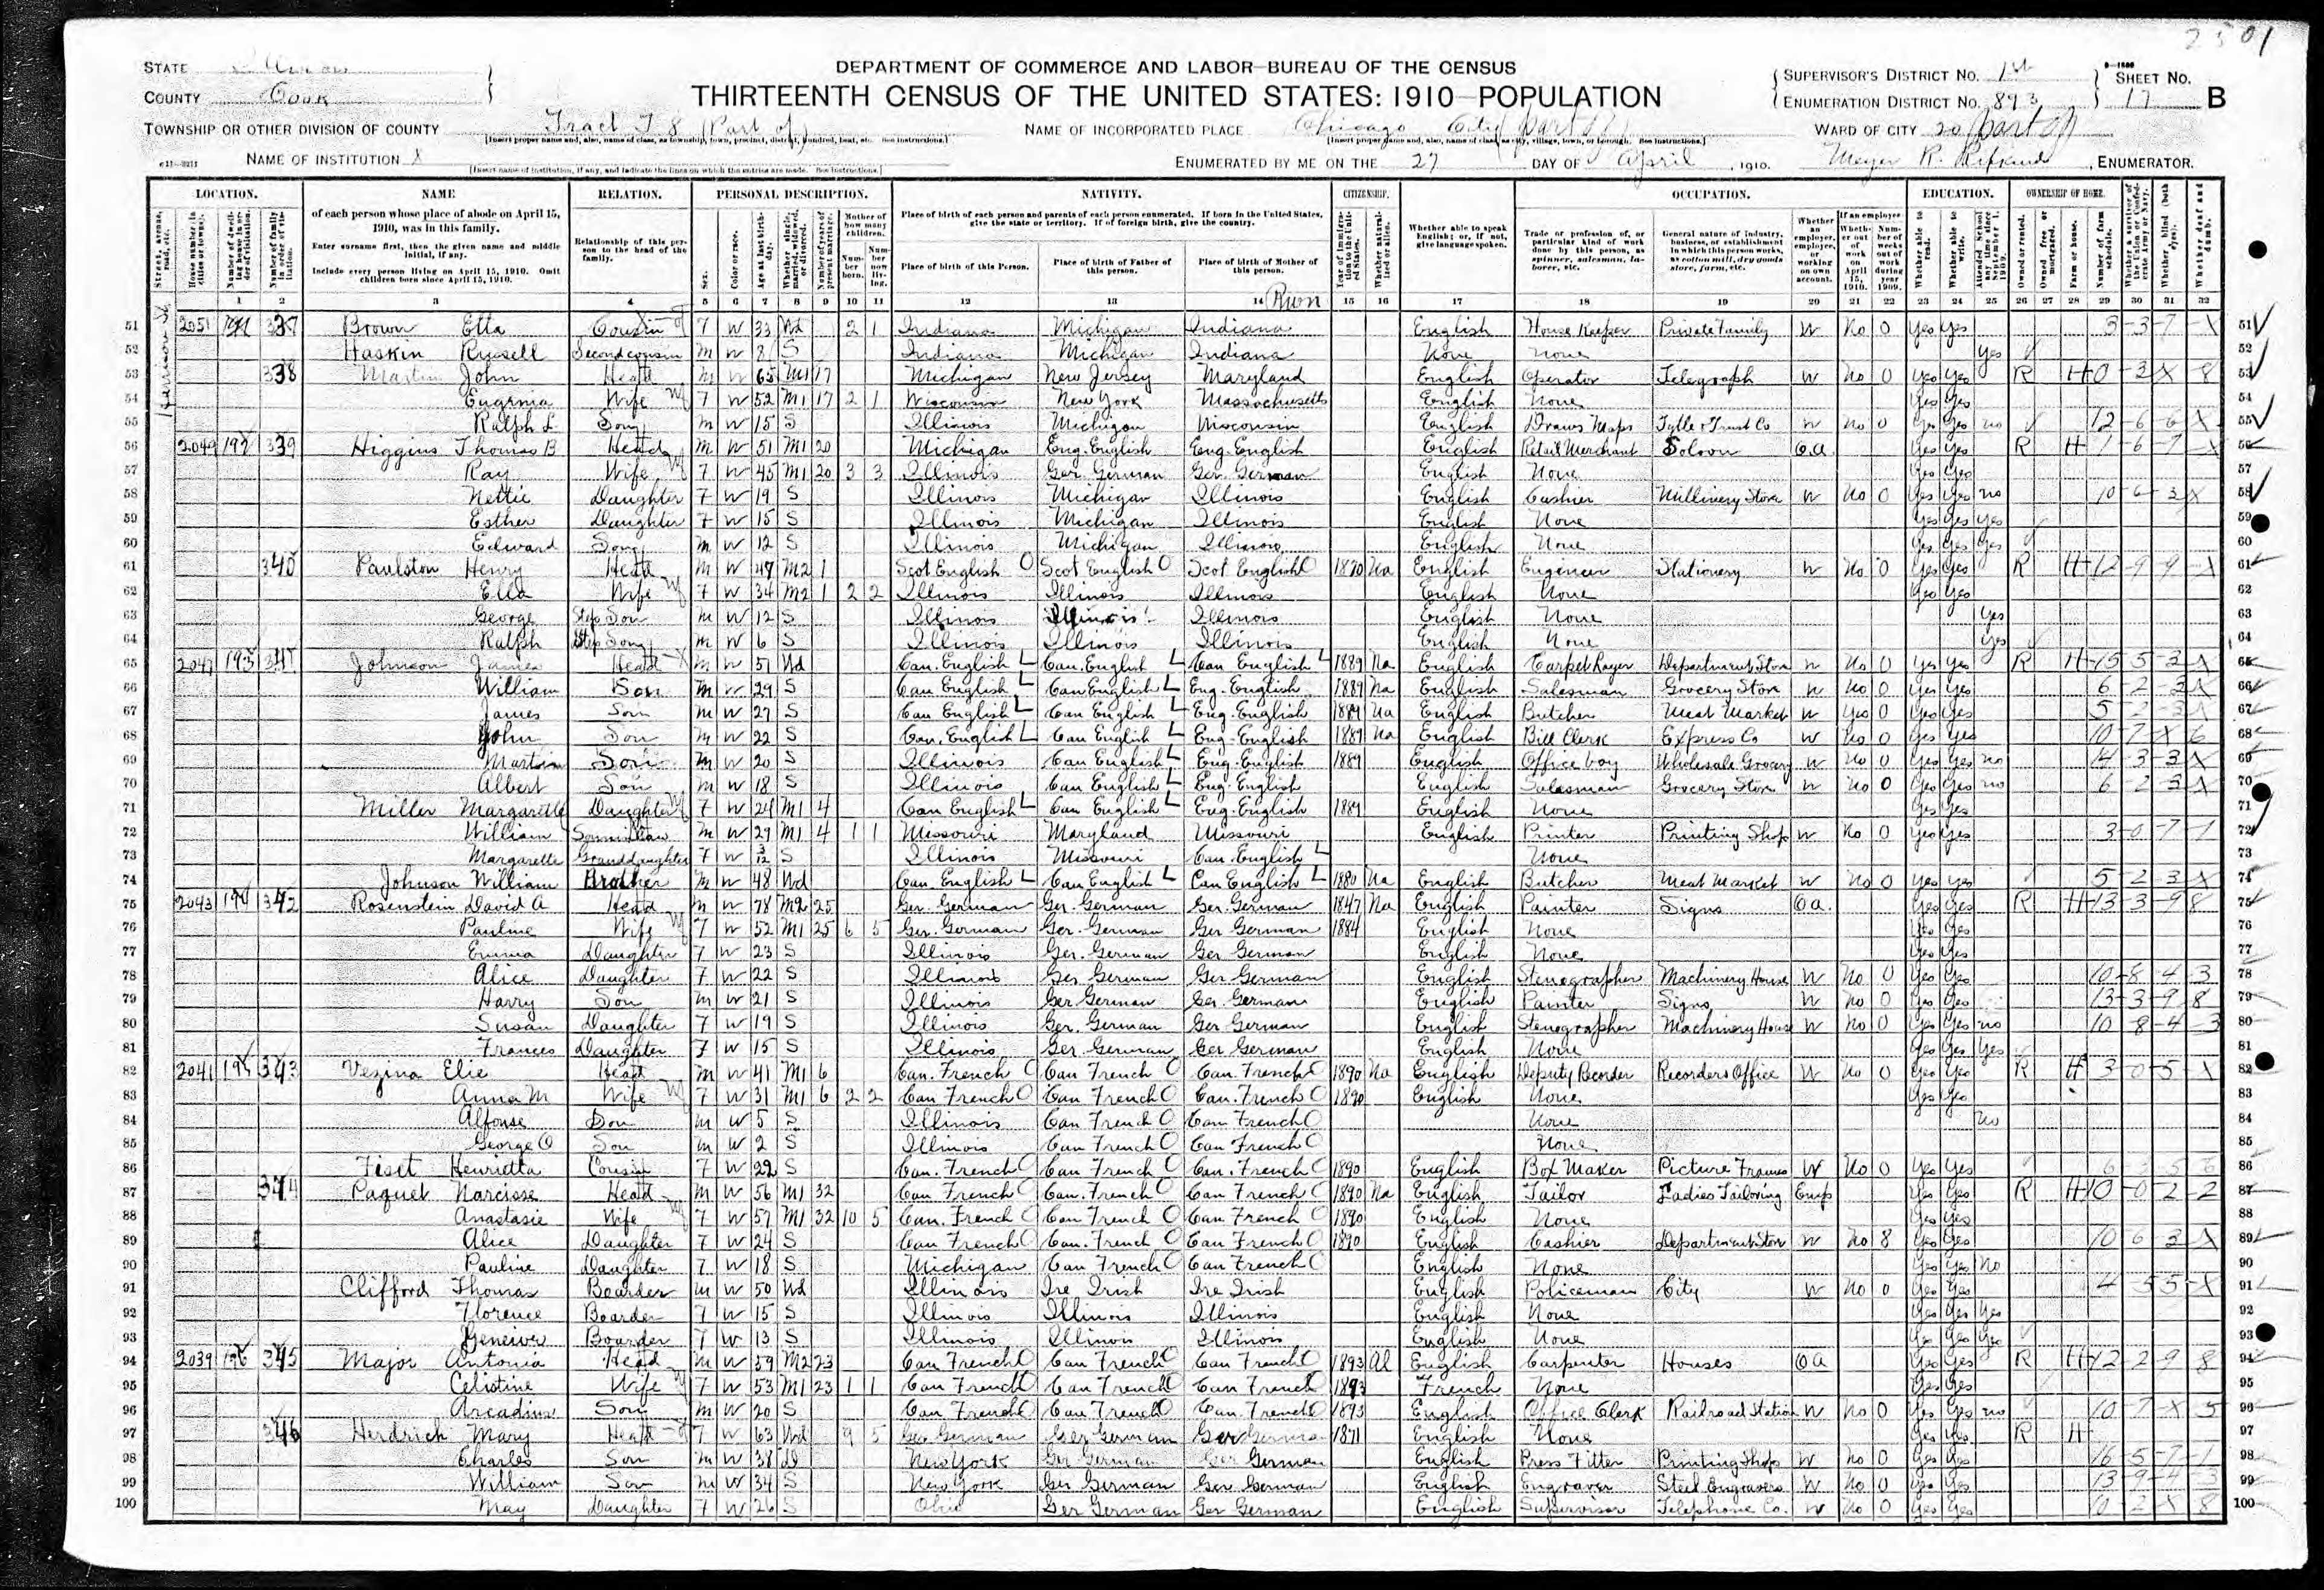 2501
STATE Illinois
COUNTY Cook
TOWNSHIP OR OTHER DIVISION OF COUNTY Tract T 8 (Part of)
NAME OF INSTITUTION X
DEPARTMENT OF COMMERCE AND LABOR—BUREAU OF THE CENSUS
THIRTEENTH CENSUS OF THE UNITED STATES: 1910—POPULATION
NAME OF INCORPORATED PLACE Chicago City (part of)
ENUMERATED BY ME ON THE 27 DAY OF April, 1910.
SUPERVISOR'S DISTRICT No. 1st
ENUMERATION DISTRICT No. 893
SHEET No. 17 B
WARD OF CITY 20 (part of)
Meyer R. , ENUMERATOR.
LOCATION. NAME RELATION. PERSONAL DESCRIPTION. NATIVITY. CITIZENSHIP. OCCUPATION. EDUCATION. OWNERSHIP OF HOME.
of each person whose place of abode on April 15, 1910, was in this family.
Enter surname first, then the given name and middle initial, if any.
Include every person living on April 15, 1910. Omit children born since April 15, 1910.
Relationship of this person to the head of the family.
Place of birth of each person and parents of each person enumerated. If born in the United States, give the state or territory. If of foreign birth, give the country.
Place of birth of this Person. Place of birth of Father of this person. Place of birth of Mother of this person.
Whether able to speak English; or, if not, give language spoken.
Trade or profession of, or particular kind of work done by this person, as spinner, salesman, laborer, etc.
General nature of industry, business, or establishment in which this person works, as cotton mill, dry goods store, farm, etc.
1 2 3 4 5 6 7 8 9 10 11 12 13 14 15 16 17 18 19 20 21 22 23 24 25 26 27 28 29 30 31 32
51 2051 337 Brown Ella Cousin F W 33 Wd 2 1 Indiana Michigan Indiana English House Keeper Private Family W No 0 Yes Yes 3-3-7-X 51
52 Haskin Russell Second cousin M W 8 S Indiana Michigan Indiana None None Yes 52
53 338 Martin John Head M W 65 M1 17 Michigan New Jersey Maryland English Operator Telegraph W No 0 Yes Yes R H 0-3-X-8 53
54 Eugenia Wife F W 52 M1 17 2 1 Wisconsin New York Massachusetts English None Yes Yes 54
55 Ralph L Son M W 15 S Illinois Michigan Wisconsin English Draws Maps Tytle & Trust Co W No 0 Yes Yes no 12-6-6-X 55
56 2049 192 339 Higgins Thomas B Head M W 51 M1 20 Michigan Eng. English Eng. English English Retail Merchant Saloon O.a. Yes Yes R H 1-6-7-X 56
57 Ray Wife F W 45 M1 20 3 3 Illinois Ger. German Ger. German English None Yes Yes 57
58 Nettie Daughter F W 19 S Illinois Michigan Illinois English Cashier Millinery Store W No 0 Yes Yes no 10-6-3-X 58
59 Esther Daughter F W 15 S Illinois Michigan Illinois English None Yes Yes Yes 59
60 Edward Son M W 12 S Illinois Michigan Illinois English None Yes Yes Yes 60
61 340 Paulston Henry Head M W 47 M2 1 Scot English Scot English Scot English 1870 Na English Engineer Stationery W No 0 Yes Yes R H 12-9-9-X 61
62 Ella Wife F W 34 M2 1 2 2 Illinois Illinois Illinois English None Yes Yes 62
63 George Step Son M W 12 S Illinois Illinois Illinois English None Yes 63
64 Ralph Step Son M W 6 S Illinois Illinois Illinois English None Yes 64
65 2047 193 341 Johnson James Head M W 51 Wd Can. English Can. English Can English 1889 Na English Carpet Layer Department Store W No 0 Yes Yes R H 15-5-3-X 65
66 William Son M W 29 S Can English Can English Eng. English 1889 Na English Salesman Grocery Store W No 0 Yes Yes 6-2-3-X 66
67 James Son M W 27 S Can English Can English Eng. English 1889 Na English Butcher Meat Market W Yes 0 Yes Yes 5-2-3-X 67
68 John Son M W 22 S Can. English Can English Eng. English 1889 Na English Bill Clerk Express Co W No 0 Yes Yes 10-7-X-6 68
69 Martin Son M W 20 S Illinois Can English Eng. English 1889 English Office boy Wholesale Grocery W No 0 Yes Yes no 4-3-3-X 69
70 Albert Son M W 18 S Illinois Can English Eng. English English Salesman Grocery Store W No 0 Yes Yes no 6-2-3-X 70
71 Miller Margarette Daughter F W 24 M1 4 Can English Can English Eng. English 1889 English None Yes Yes 71
72 William Son in law M W 29 M1 4 1 1 Missouri Maryland Missouri English Printer Printing Shop W No 0 Yes Yes 3-0-7-1 72
73 Margarette Granddaughter F W 3/12 S Illinois Missouri Can. English None 73
74 Johnson William Brother M W 48 Wd Can. English Can English Can English 1880 Na English Butcher Meat Market W No 0 Yes Yes 5-2-3-X 74
75 2043 194 342 Rosenstein David A Head M W 78 M2 25 Ger. German Ger. German Ger. German 1847 Na English Painter Signs O.a. Yes Yes R H 13-3-9-8 75
76 Pauline Wife F W 52 M1 25 6 5 Ger. German Ger. German Ger German 1884 English None Yes Yes 76
77 Emma Daughter F W 23 S Illinois Ger. German Ger German English None Yes Yes 77
78 Alice Daughter F W 22 S Illinois Ger German Ger German English Stenographer Machinery House W No 0 Yes Yes 10-8-4-3 78
79 Harry Son M W 21 S Illinois Ger. German Ger. German English Painter Signs W No 0 Yes Yes 13-3-9-8 79
80 Susan Daughter F W 19 S Illinois Ger. German Ger German English Stenographer Machinery House W No 0 Yes Yes no 10-8-4-3 80
81 Frances Daughter F W 15 S Illinois Ger. German Ger German English None Yes Yes Yes 81
82 2041 195 343 Vezina Elie Head M W 41 M1 6 Can. French Can French Can. French 1890 Na English Deputy Recorder Recorders Office W No 0 Yes Yes R H 3-0-5-X 82
83 Anna M Wife F W 31 M1 6 2 2 Can French Can French Can. French 1890 English None Yes Yes 83
84 Alfonse Son M W 5 S Illinois Can French Can French None No 84
85 George O Son M W 2 S Illinois Can French Can French None 85
86 Fiset Henrietta Cousin F W 22 S Can. French Can French Can. French 1890 English Box Maker Picture Frames W No 0 Yes Yes 86
87 344 Paquet Narcisse Head M W 56 M1 32 Can French Can. French Can French 1890 Na English Tailor Ladies Tailoring Emp Yes Yes R H 10-0-2-2 87
88 Anastasie Wife F W 57 M1 32 10 5 Can. French Can French Can French 1890 English None Yes Yes 88
89 Alice Daughter F W 24 S Can French Can. French Can French 1890 English Cashier Department Store W No 8 Yes Yes 10-6-3-X 89
90 Pauline Daughter F W 18 S Michigan Can French Can French English None Yes Yes No 90
91 Clifford Thomas Boarder M W 50 Wd Illinois Ire Irish Ire Irish English Policeman City W No 0 Yes Yes 4-5-5-X 91
92 Florence Boarder F W 15 S Illinois Illinois Illinois English None Yes Yes Yes 92
93 Geneiver Boarder F W 13 S Illinois Illinois Illinois English None Yes Yes Yes 93
94 2039 196 345 Major Antonia Head M W 59 M2 23 Can French Can French Can French 1893 Al English Carpenter Houses O a Yes Yes R H 12-2-9-8 94
95 Celistine Wife F W 53 M1 23 1 1 Can French Can French Can French 1893 French None Yes Yes 95
96 Arcadius Son M W 20 S Can French Can French Can. French 1893 English Office Clerk Railroad Station W No 0 Yes Yes no 10-7-X-5 96
97 346 Herdrich Mary Head F W 63 Wd 9 5 Ger German Ger German Ger German 1871 English None Yes Yes R H 97
98 Charles Son M W 38 D New York Ger German Ger German English Press Fitter Printing Shop W No 0 Yes Yes 16-5-7-1 98
99 William Son M W 34 S New York Ger German Ger German English Engraver Steel Engravers W No 0 Yes Yes 13-9-4-3 99
100 May Daughter F W 26 S Ohio Ger German Ger German English Supervisor Telephone Co. W No 0 Yes Yes 10-2-X-8 100